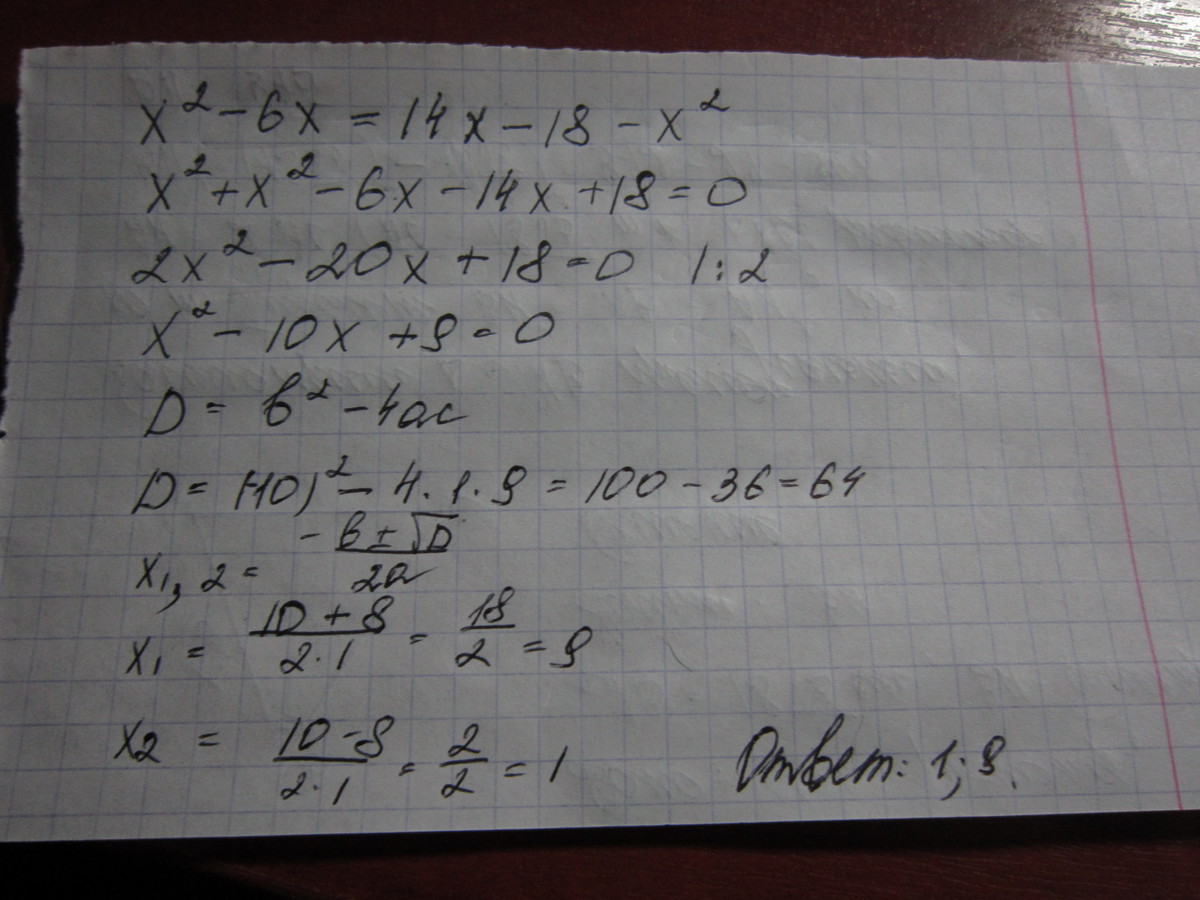 x² - 6x = 14x - 18 - x²
x² + x² - 6x - 14x + 18 = 0
2x² - 20x + 18 = 0 |:2
x² - 10x + 9 = 0
D = b² - 4ac
D = (-10)² - 4·1·9 = 100 - 36 = 64
x₁,₂ = -b ± √D / 2a
x₁ = 10 + 8 / 2·1 = 18 / 2 = 9
x₂ = 10 - 8 / 2·1 = 2 / 2 = 1
Ответ: 1; 9.